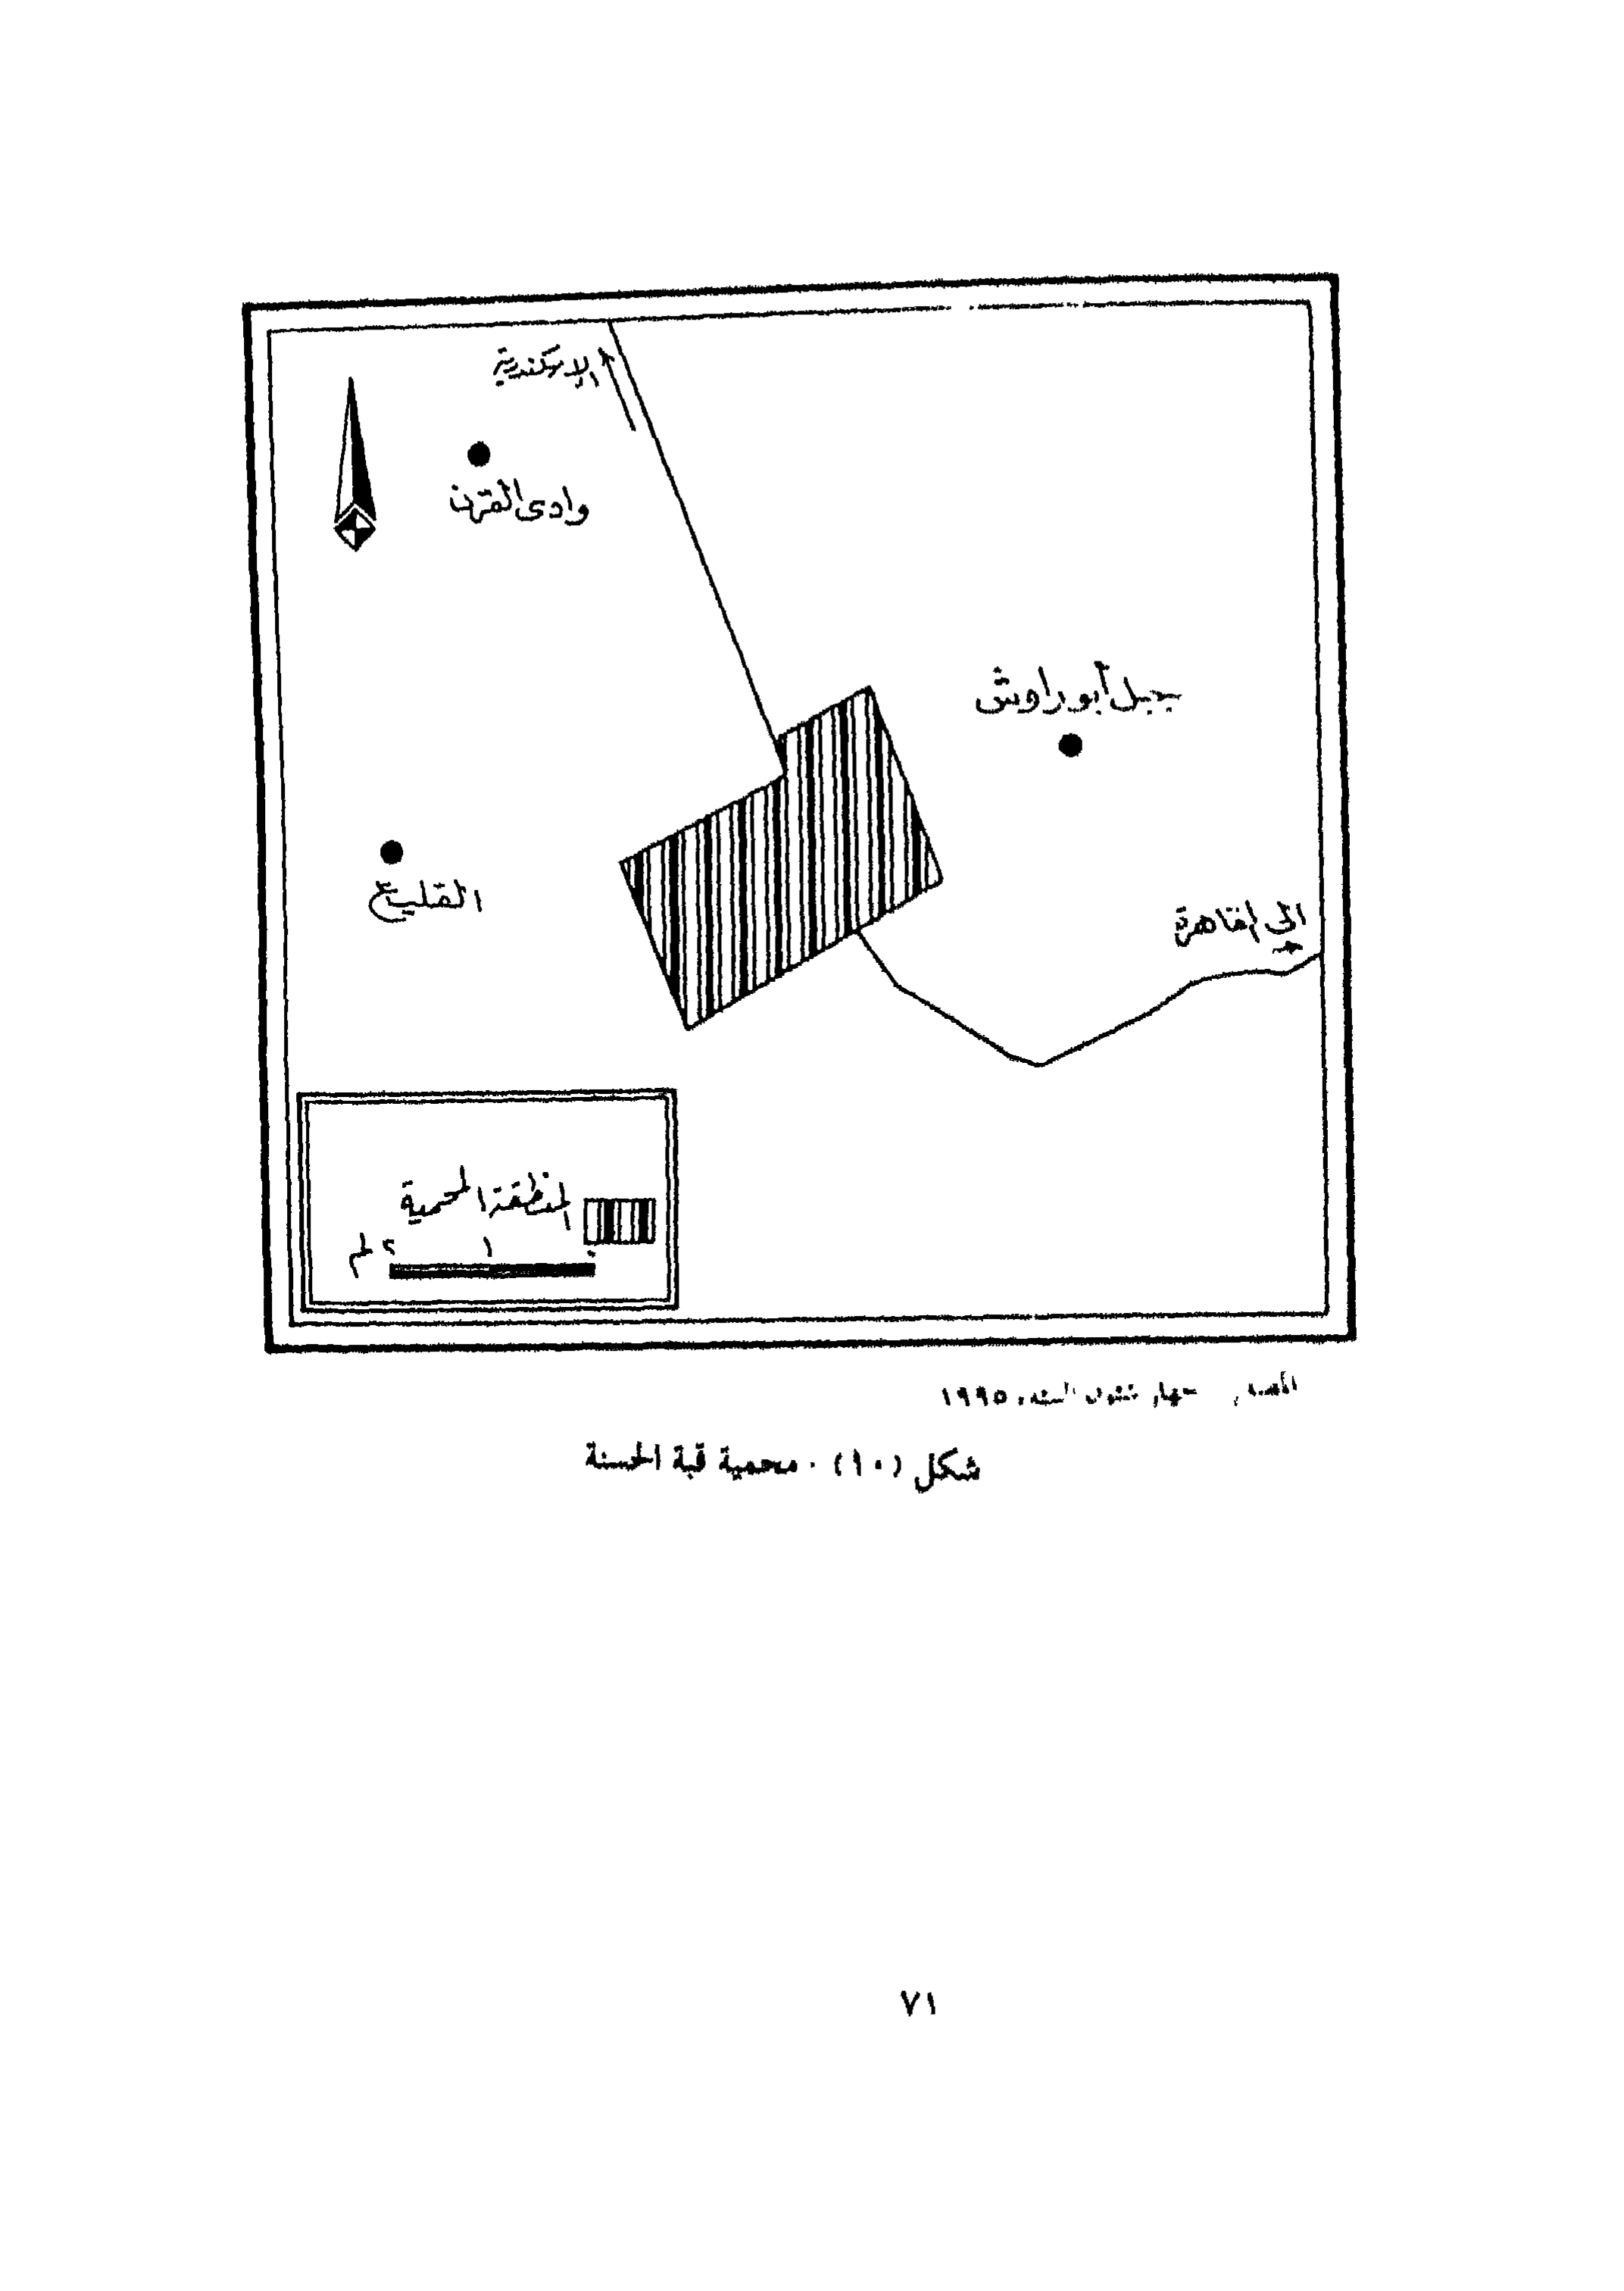 الإسكندرية
وادى القرن
جبل أبو رواش
القليع
الى القاهرة
المنطقة المحمية
٢ ١ ٠ كم
المصدر جهاز شئون البيئة، ١٩٩٥
شكل (١٠) . محمية قبة الحسنة
٧١